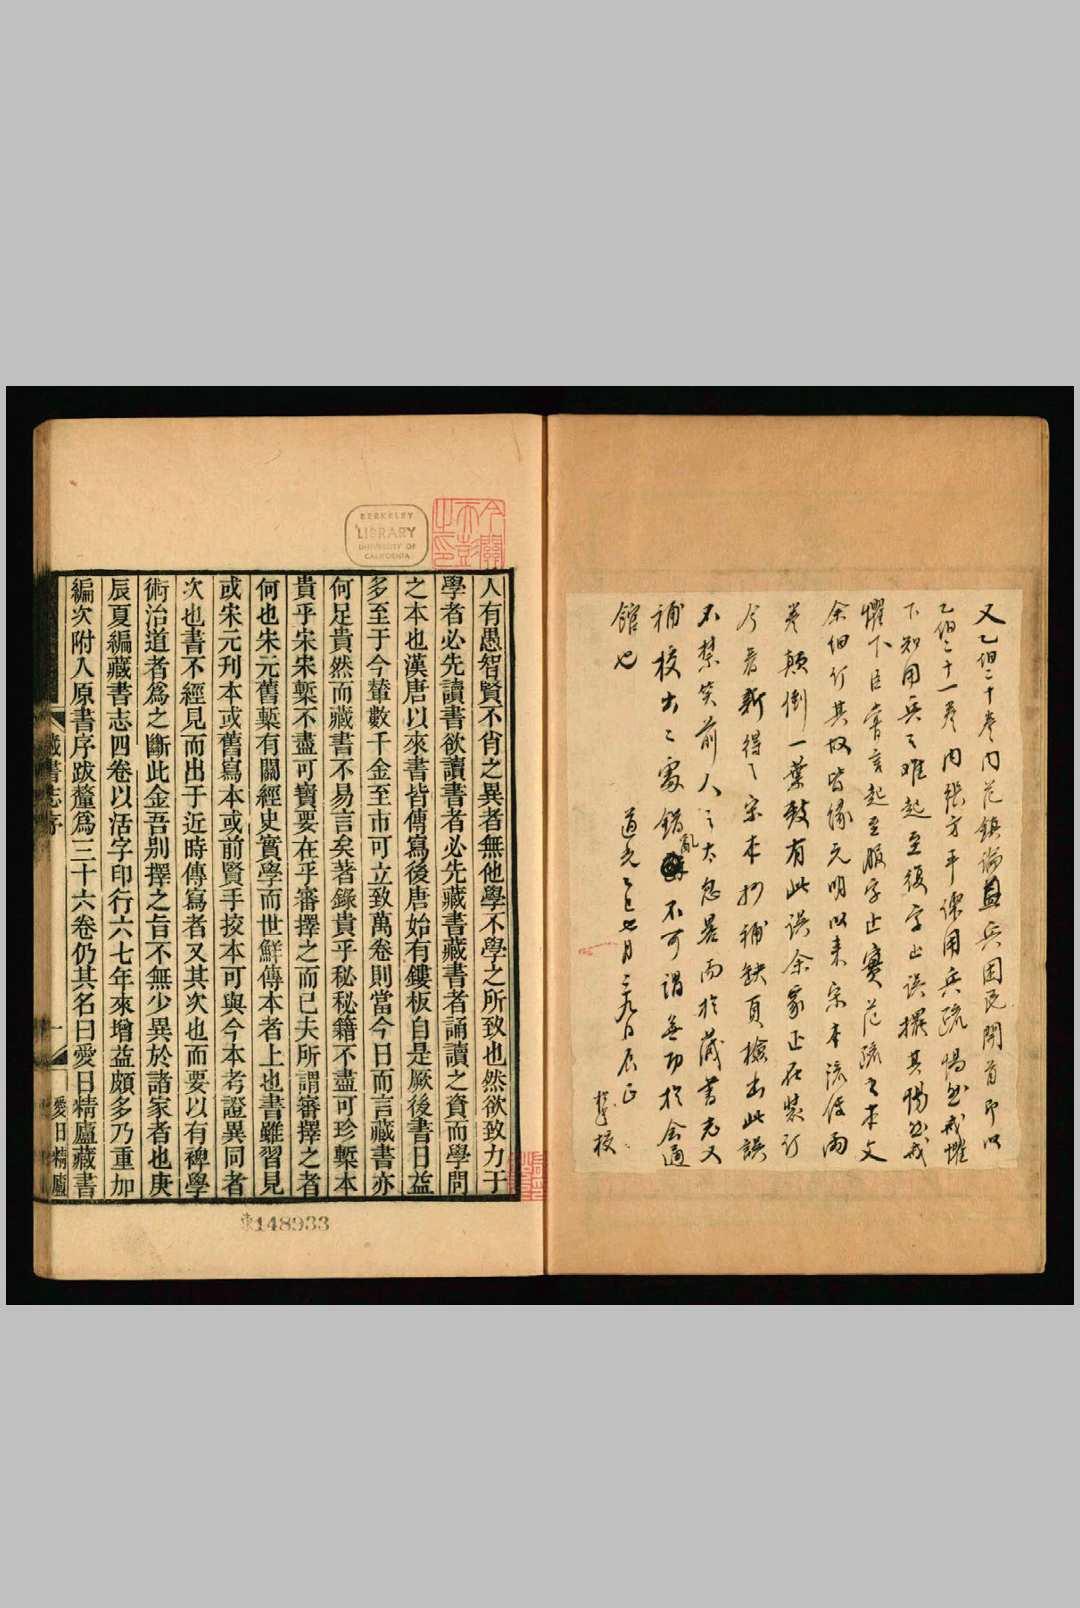 又乙佰二十卷內范鎮論益兵困民開首即以
乙佰二十一卷內張方平諫用兵疏惕然戒懼
下知用兵之難起至復字止誤攙其惕然戒
懼下臣嘗言起至服字止實范疏之本文
余細訂其故皆緣元明以來宋本流傳兩
卷顛倒一葉致有此誤余家正在裝訂
今君新得之宋本抄補缺頁檢出此誤
不禁笑前人之太忽畧而於藏書志又
補校出之處錯亂不可謂無功於会通
館也
道光乙巳七月 日辰正
校
BERKELEY
LIBRARY
UNIVERSITY OF
CALIFORNIA
今關天彭之印
人有愚智賢不肖之異者無他學不學之所致也然欲致力于
學者必先讀書欲讀書者必先藏書藏書者誦讀之資而學問
之本也漢唐以來書皆傳寫後唐始有鏤板自是厥後書日益
多至于今輦數千金至市可立致萬卷則當今日而言藏書亦
何足貴然而藏書不易言矣著錄貴乎秘秘籍不盡可珍槧本
貴乎宋宋槧不盡可寶要在乎審擇之而已夫所謂審擇之者
何也宋元舊槧有關經史實學而世鮮傳本者上也書雖習見
或宋元刊本或舊寫本或前賢手挍本可與今本考證異同者
次也書不經見而出于近時傳寫者又其次也而要以有裨學
術治道者爲之斷此金吾别擇之旨不無少異於諸家者也庚
辰夏編藏書志四卷以活字印行六七年來增益頗多乃重加
編次附入原書序跋釐爲三十六卷仍其名曰愛日精廬藏書
藏書志序
一
愛日精廬
東148933